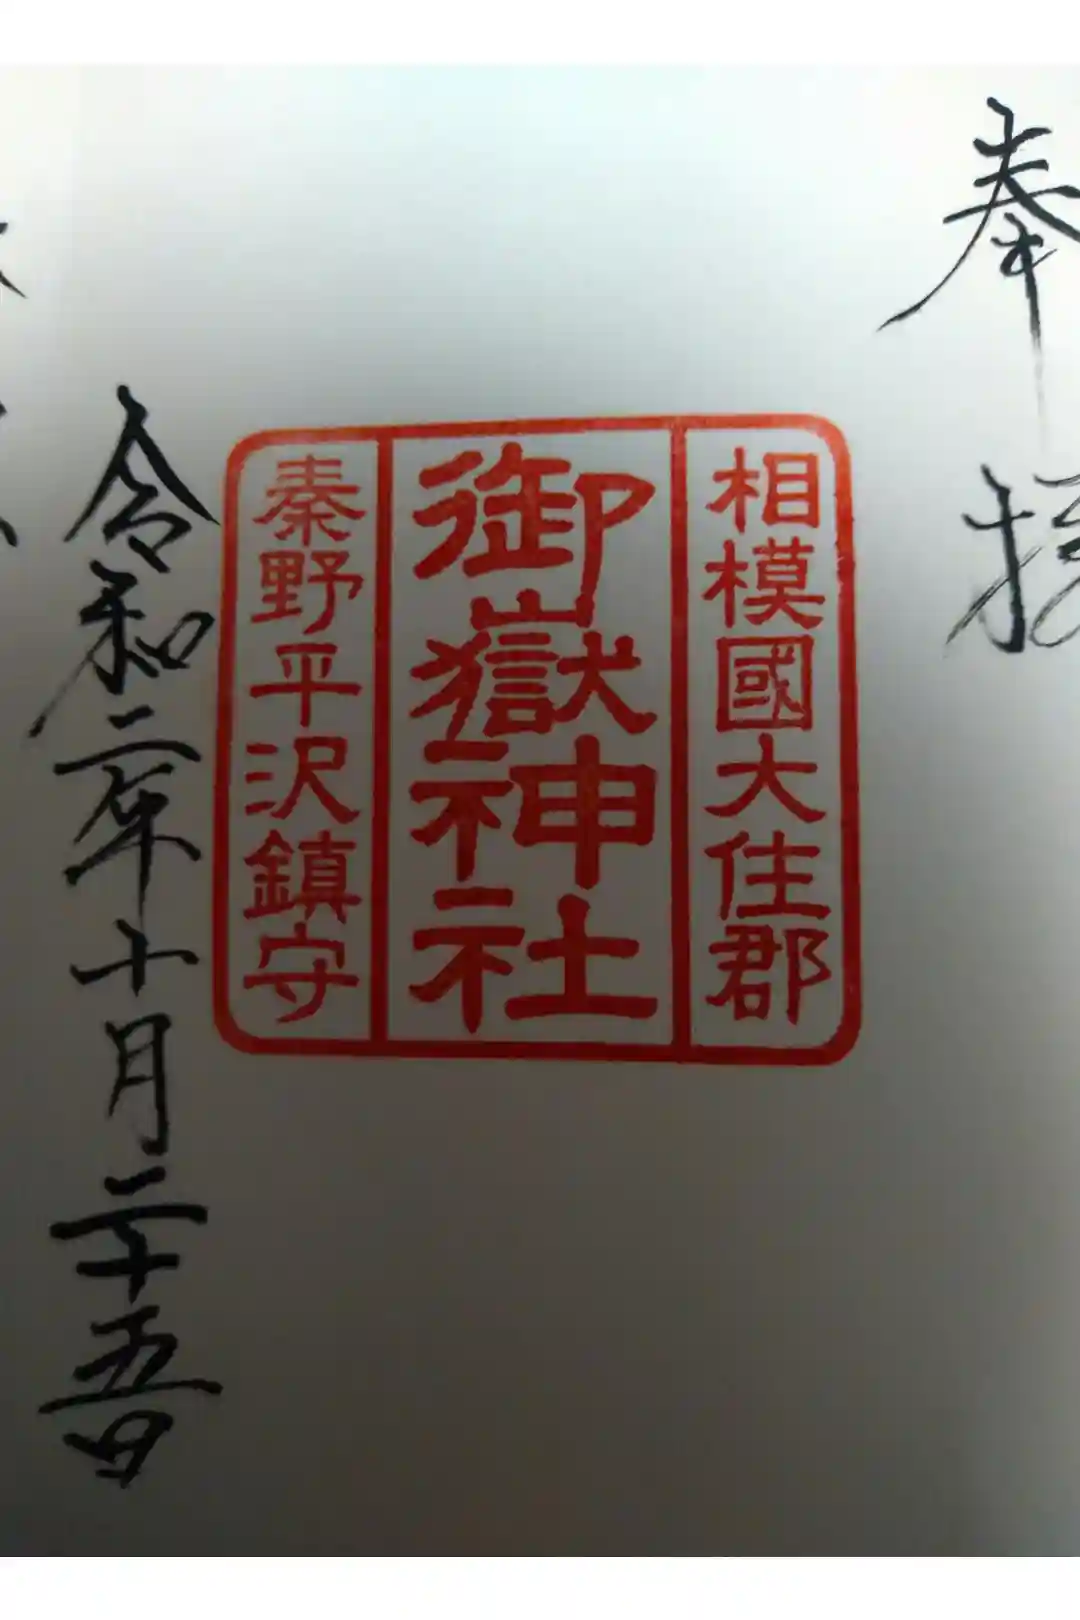 奉拝
相模國大住郡
御嶽神社
秦野平沢鎮守
令和二年十月二十五日